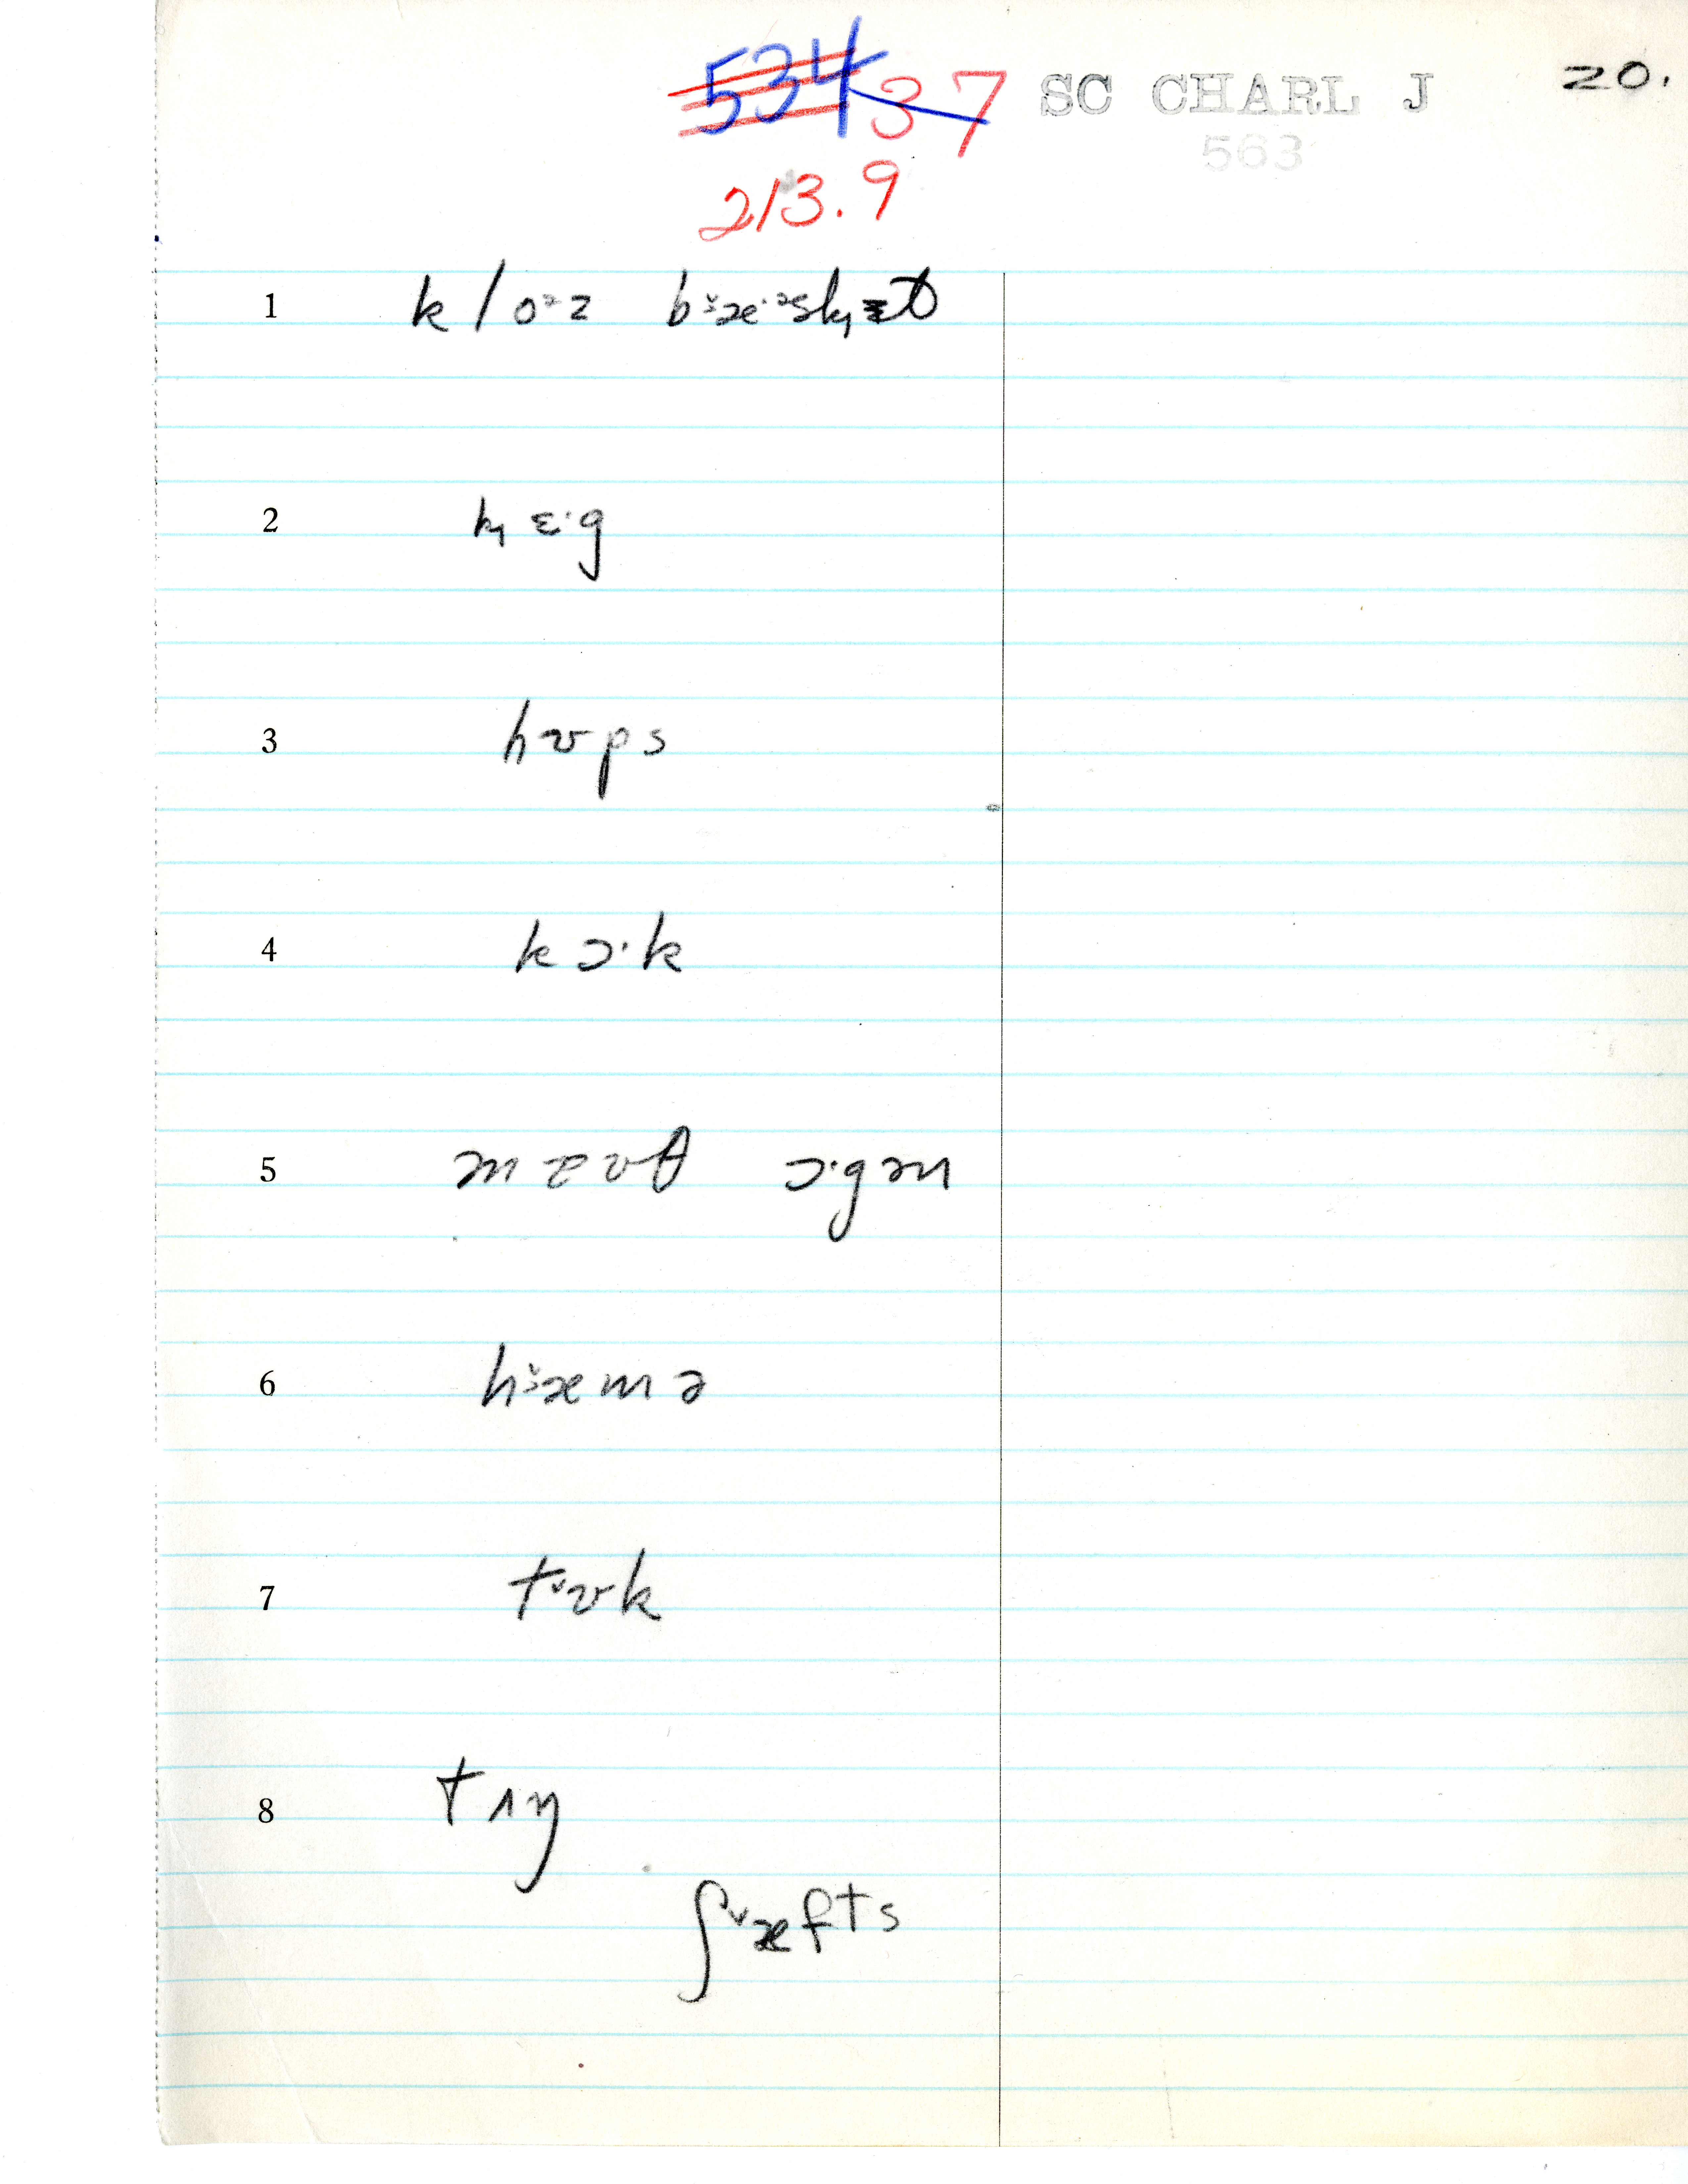 534 37 SC CHARL J 20.
563
213.9
1 kloᶷz bæ·ᵊsk̟ᵻt
2 k̟ɛ·g
3 hʊps
4 kɔ·k
5 maʊθ ɔ·gən
6 hæmə
7 tʊk
8 tʌŋ
ʃæfts